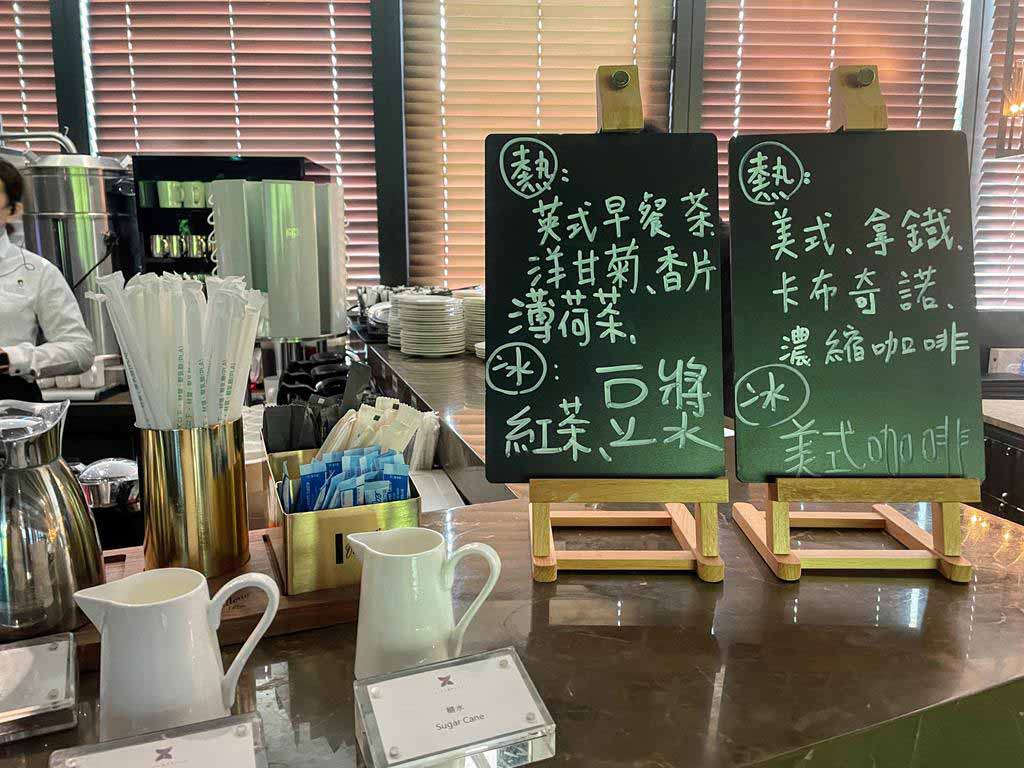 熱:
英式早餐茶
洋甘菊、香片
薄荷茶、
冰:
紅茶、豆漿
熱:
美式、拿鐵、
卡布奇諾、
濃縮咖啡
冰
美式咖啡
糖水
Sugar Cane